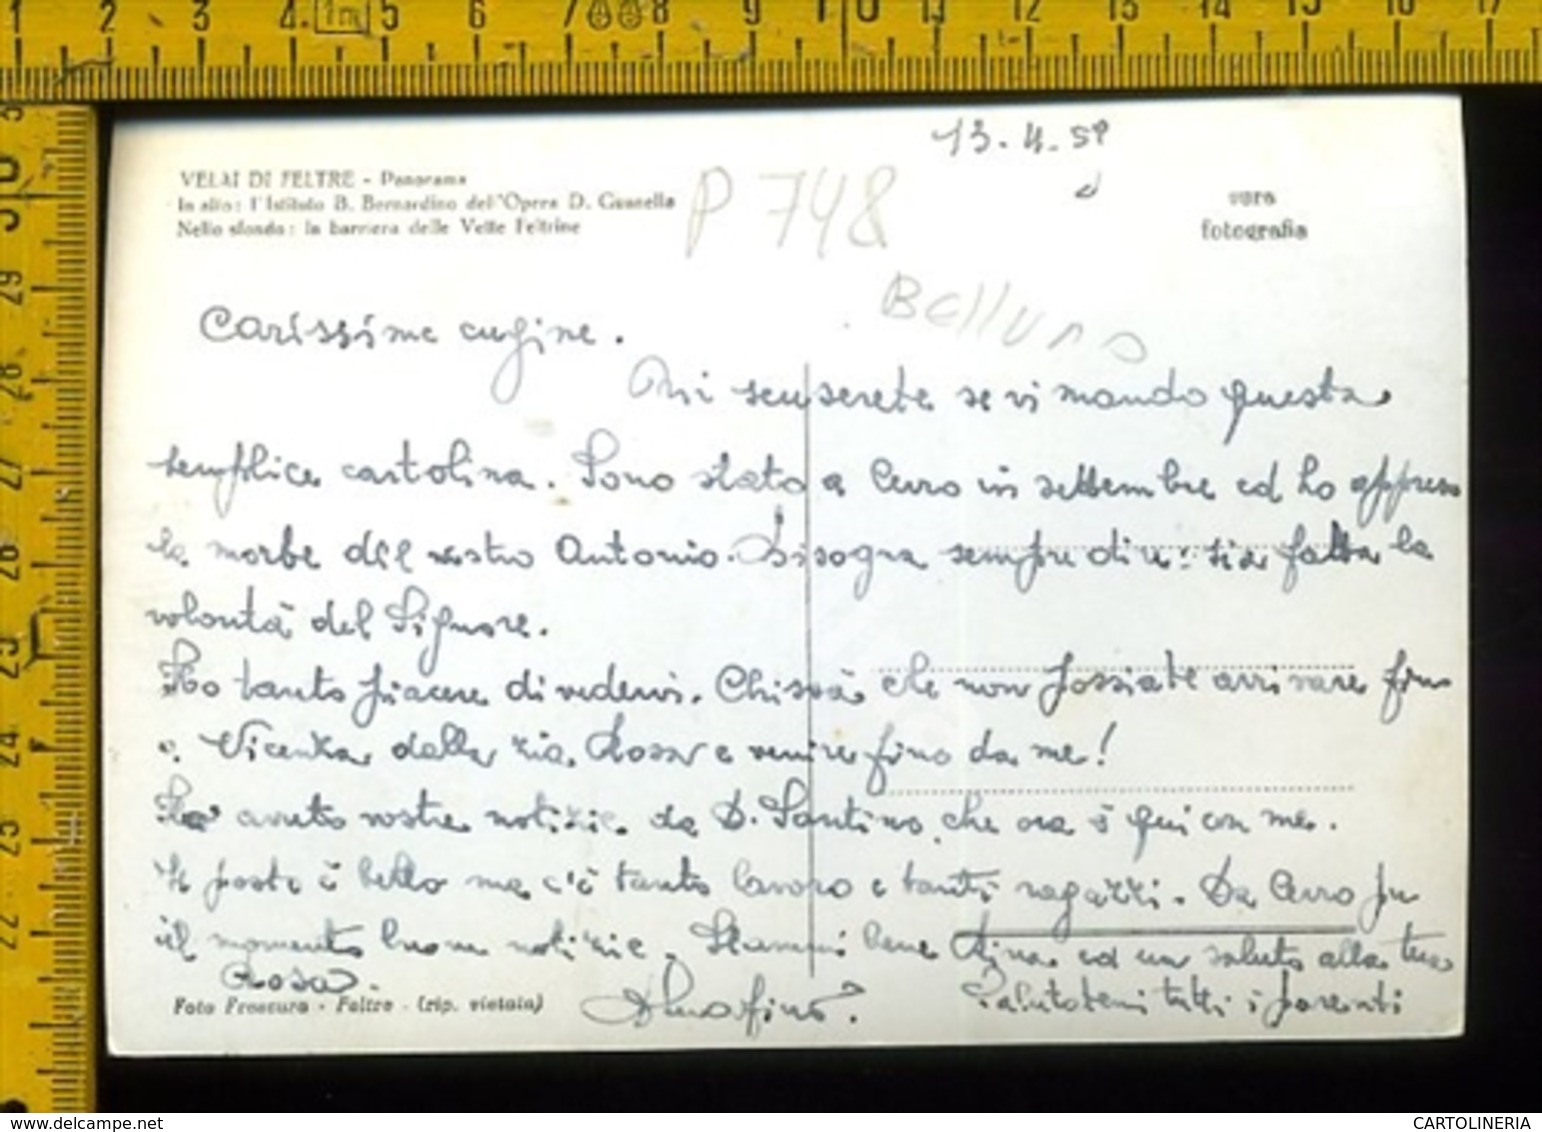 1 2 3 4 1m 5 6 7 8 9 10 11 12 13 14 15 16 17
29
28
27
26
25
24
23
22
13.4.59
VELAI DI FELTRE - Panorama
In alto: l'Istituto B. Bernardino dell'Opera D. Guanella
Nello sfondo: la barriera delle Vette Feltrine
P 748
vera
fotografia
Belluno
Carissime cugine.
Mi scuserete se vi mando questa
semplice cartolina. Sono stato a Cerro in settembre ed ho appreso
la morte del vostro Antonio. Bisogna sempre dire: sia fatta la
volontà del Signore.
Ho tanto piacere di vedervi. Chissà che non possiate arrivare fino
a Vicenza dalla zia Rosa e venire fino da me!
Ho avuto vostre notizie da D. Santino che ora è qui con me.
Il posto è bello ma c'è tanto lavoro e tanti ragazzi. Da Cerro per
il momento buone notizie. Stammi bene ed un saluto alla tua
Rosa.
Salutatemi tutti i parenti
Foto Frescura - Feltre - (rip. vietata)
www.delcampe.net
CARTOLINERIA